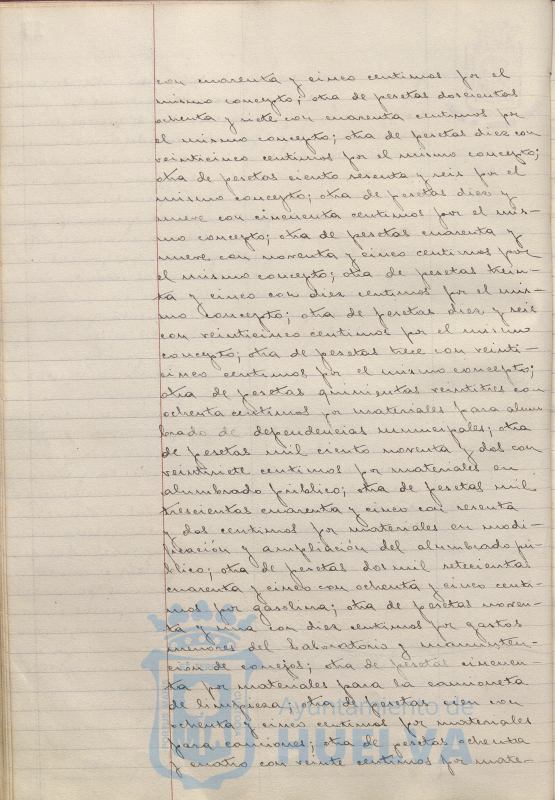 con cuarenta y cinco centimos por el
mismo concepto; otra de pesetas doscientas
ochenta y siete con cuarenta centimos por
el mismo concepto; otra de pesetas diez con
veinticinco centimos por el mismo concepto;
otra de pesetas ciento sesenta y seis por el
mismo concepto; otra de pesetas diez y
nueve con cincuenta centimos por el mis-
mo concepto; otra de pesetas cuarenta y
nueve con noventa y cinco centimos por
el mismo concepto; otra de pesetas trein-
ta y cinco con diez centimos por el mis-
mo concepto; otra de pesetas diez y seis
con veinticinco centimos por el mismo
concepto; otra de pesetas trece con veinti-
cinco centimos por el mismo concepto;
otra de pesetas quinientas veintitres con
ochenta centimos por materiales para alum-
brado de dependencias municipales; otra
de pesetas mil ciento noventa y dos con
veintisiete centimos por materiales en
alumbrado público; otra de pesetas mil
trescientas cuarenta y cinco con sesenta
y dos centimos por materiales en modi-
ficación y ampliación del alumbrado pú-
blico; otra de pesetas dos mil setecientas
cuarenta y cinco con ochenta y cinco centi-
mos por gasolina; otra de pesetas noven-
ta y una con diez centimos por gastos
menores del Laboratorio y manunten-
ción de conejos; otra de pesetas cincuen-
ta por materiales para la camioneta
de limpieza; otra de pesetas cien con
ochenta y cinco centimos por materiales
para camiones; otra de pesetas ochenta
y cuatro con veinte centimos por mate-
Ayuntamiento de
HUELVA